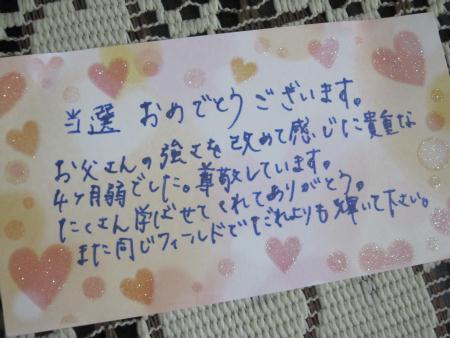 当選 おめでとうございます。
お父さんの強さを改めて感じた貴重な
4ヶ月弱でした。尊敬しています。
たくさん学ばせてくれてありがとう。
また同じフィールドでだれよりも輝いて下さい。